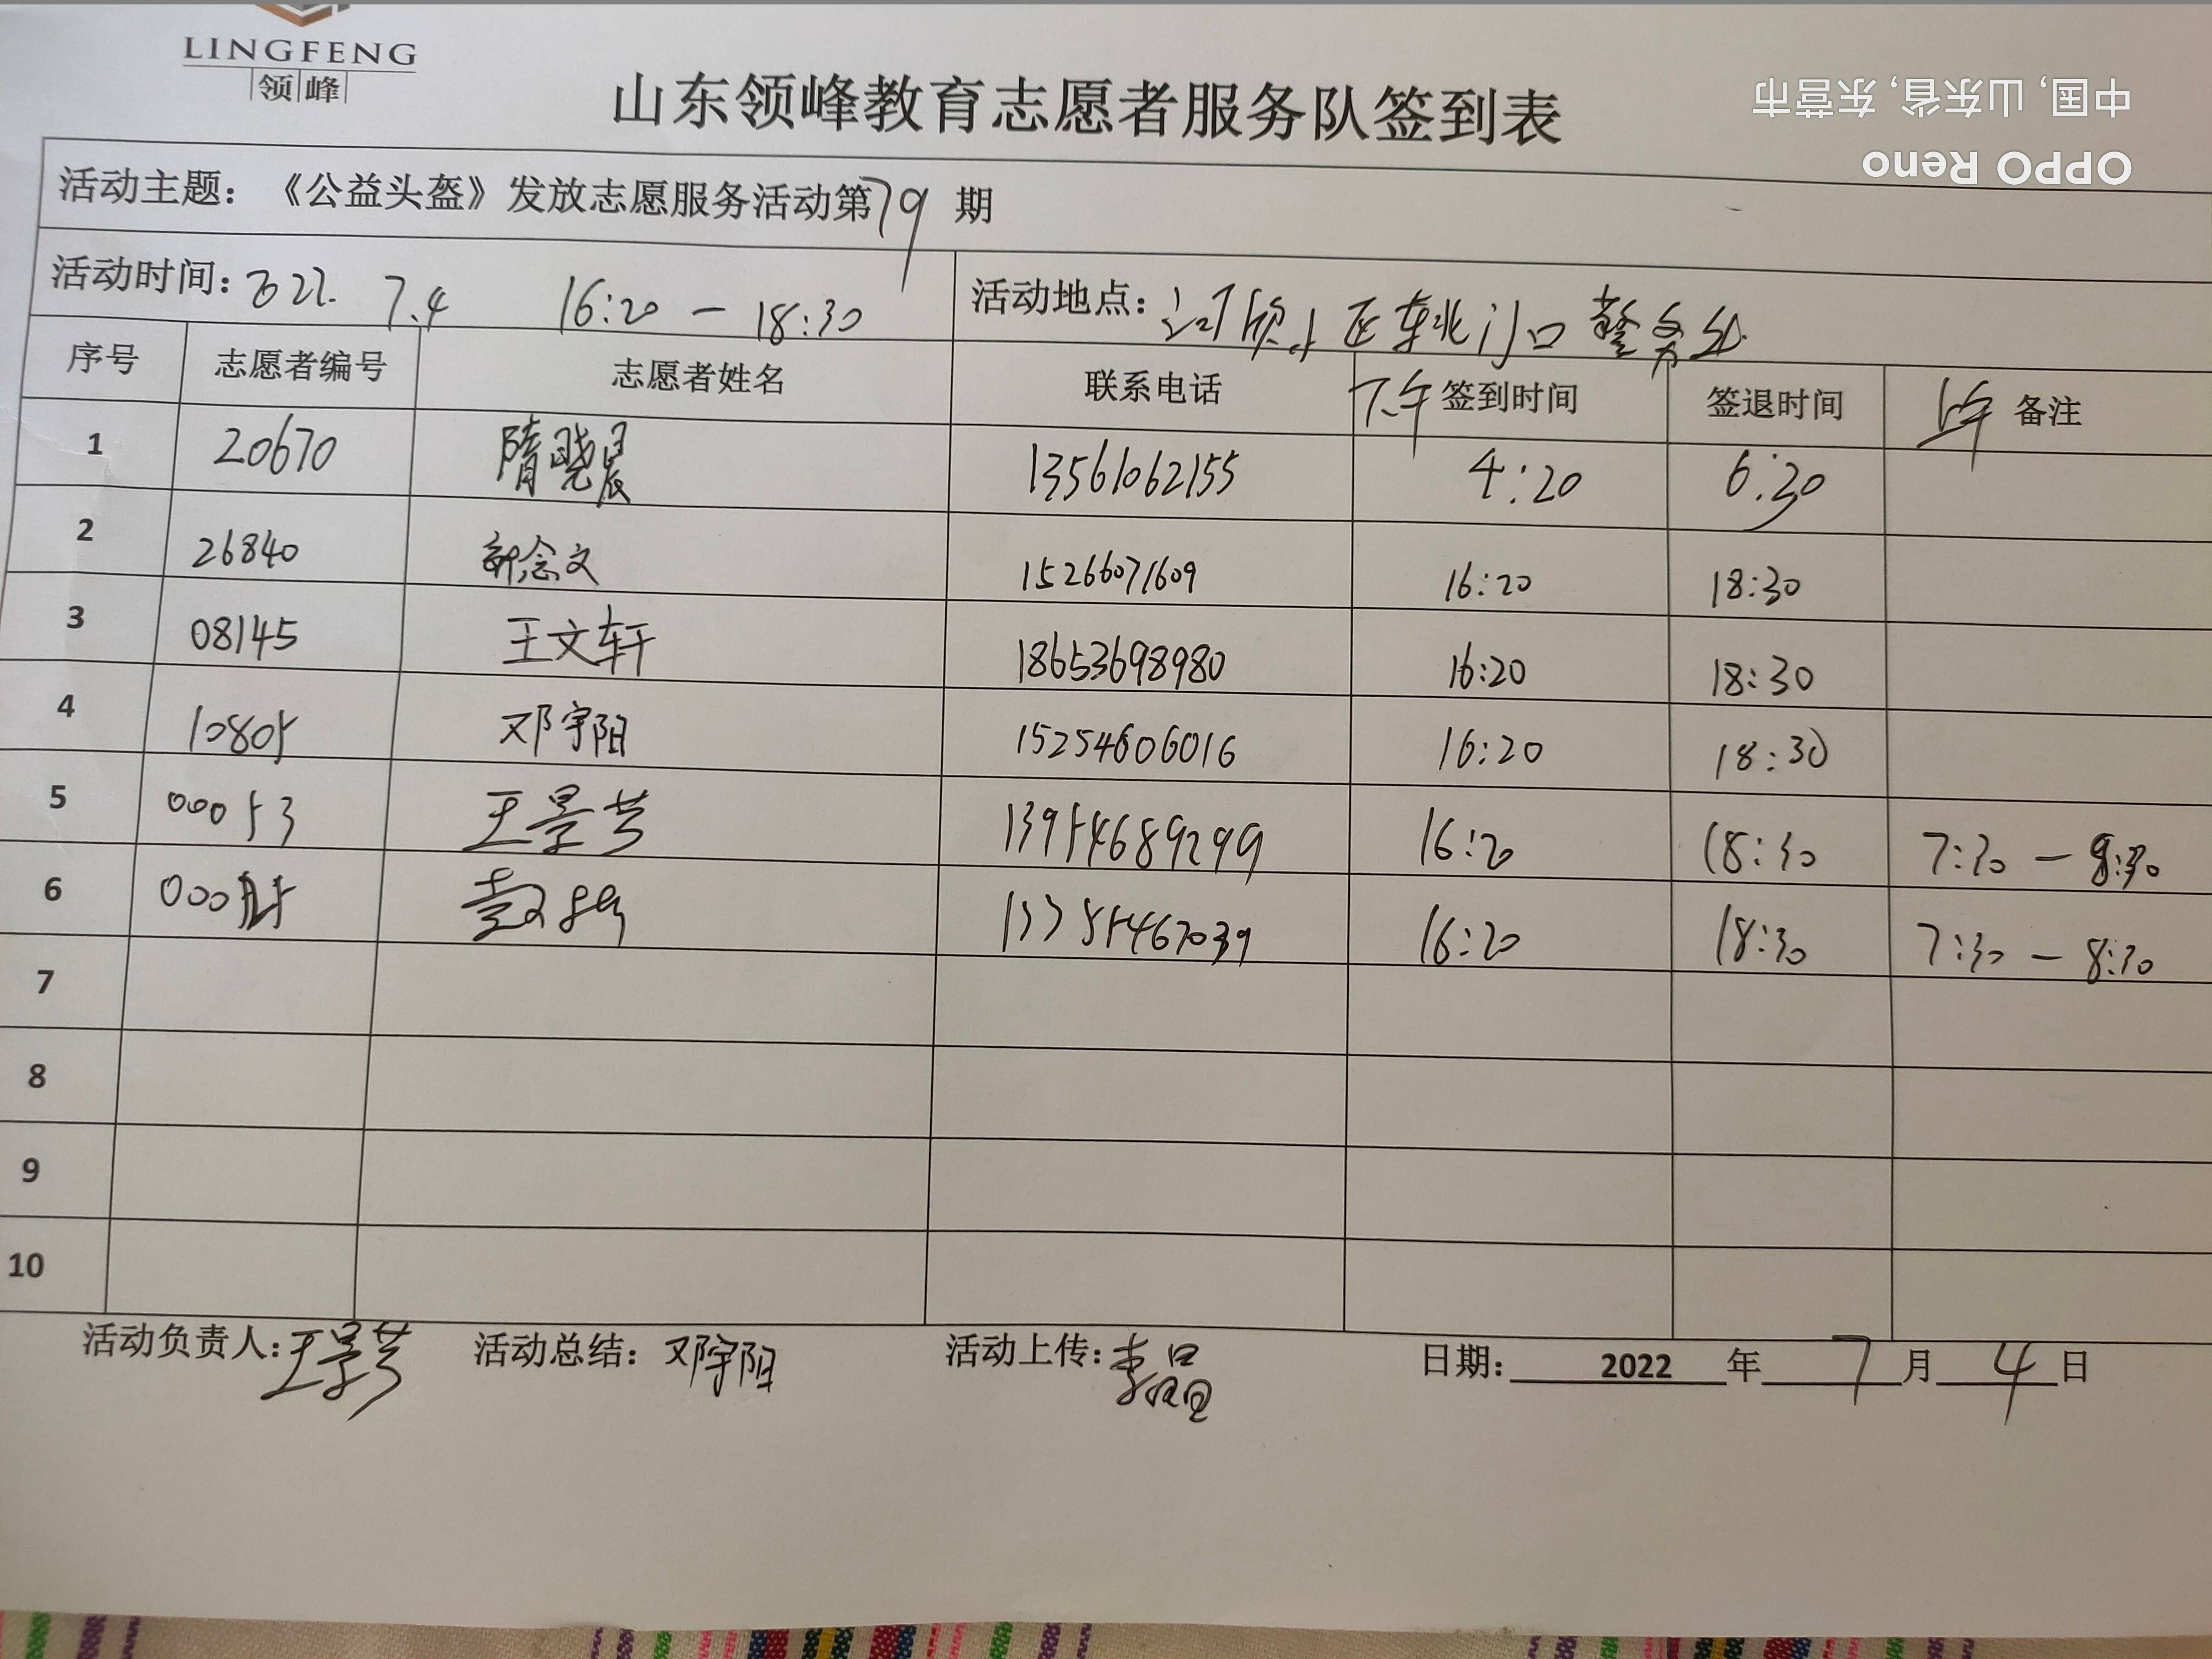 LINGFENG
领峰
山东领峰教育志愿者服务队签到表
中国, 山东省, 东营市
OPPO Reno
活动主题：《公益头盔》发放志愿服务活动第79期
活动时间：2022. 7.4 16:20 — 18:30 活动地点： 小区东北门口警务
序号 志愿者编号 志愿者姓名 联系电话 下午 签到时间 签退时间 上午 备注
1 20670 隋晓晨 13561062155 4:20 6:30
2 26840 念文 15266071609 16:20 18:30
3 08145 王文轩 18653698980 16:20 18:30
4 10805 邓宇阳 15254606016 16:20 18:30
5 00053 王景芳 13954689299 16:20 18:30 7:30 — 8:30
6 16:20 18:30 7:30 — 8:30
7
8
9
10
活动负责人：王景芳 活动总结：邓宇阳 活动上传：李 日期： 2022 年 7 月 4 日